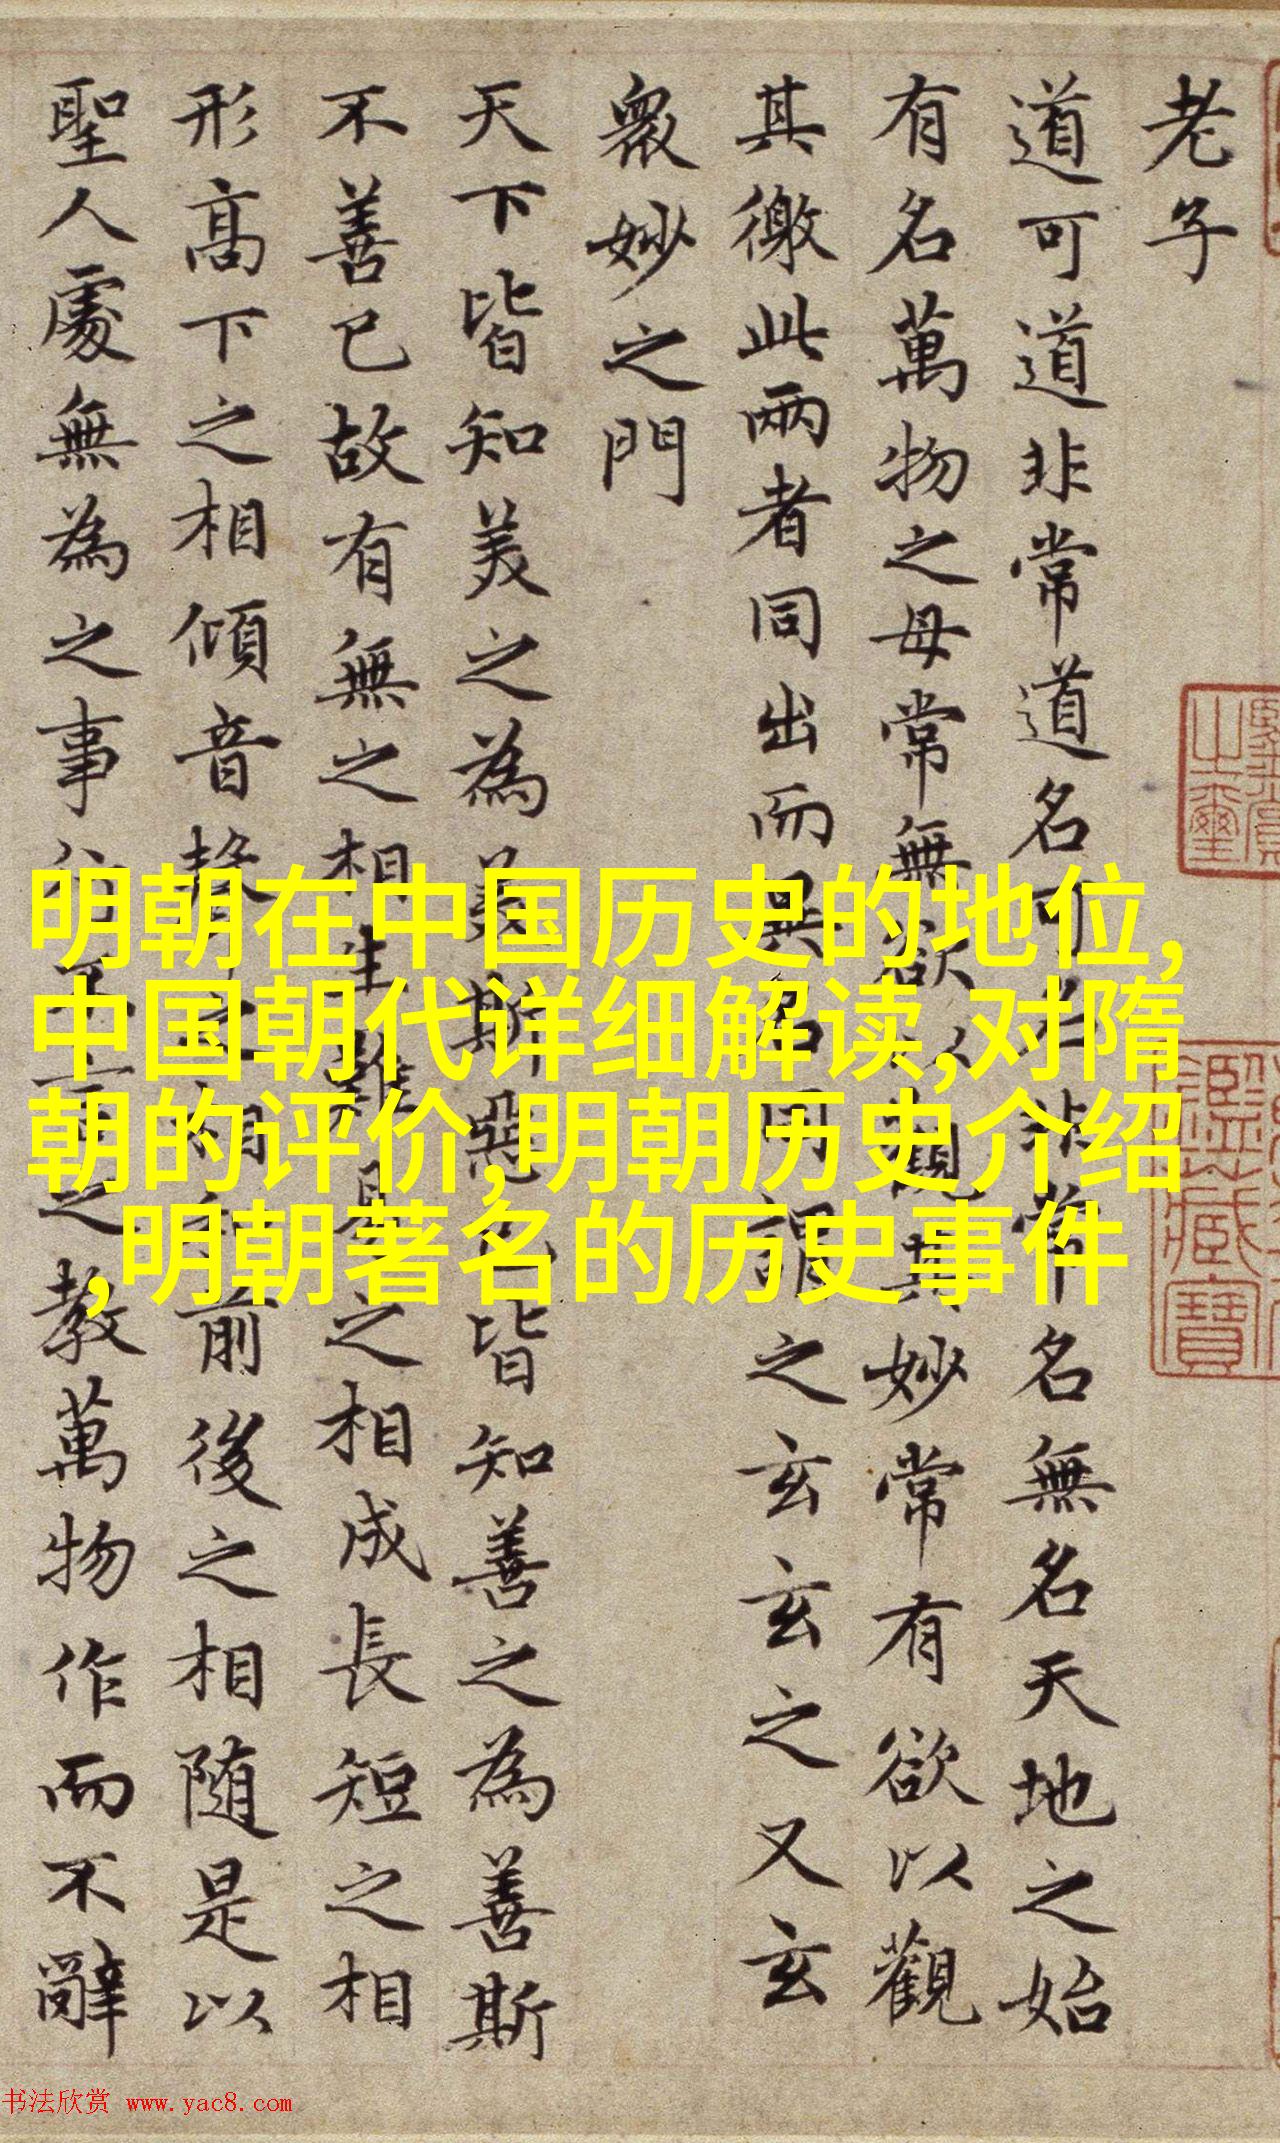 老子
道可道非常道名可名非常名無名天地之始
有名萬物之母常無欲以觀其妙常有欲以觀
其徼此兩者同出而異名同謂之玄玄之又玄
衆妙之門
天下皆知美之為美斯惡已皆知善之為善斯
不善已故有無之相生難易之相成長短之相
形高下之相傾音聲之相和前後之相随是以
聖人處無為之事行不言之教萬物作而不辭
之璽
鑑藏寶
明朝在中国历史的地位,
中国朝代详细解读,对隋
朝的评价,明朝历史介绍
,明朝著名的历史事件
书法欣赏 www.yac8.com